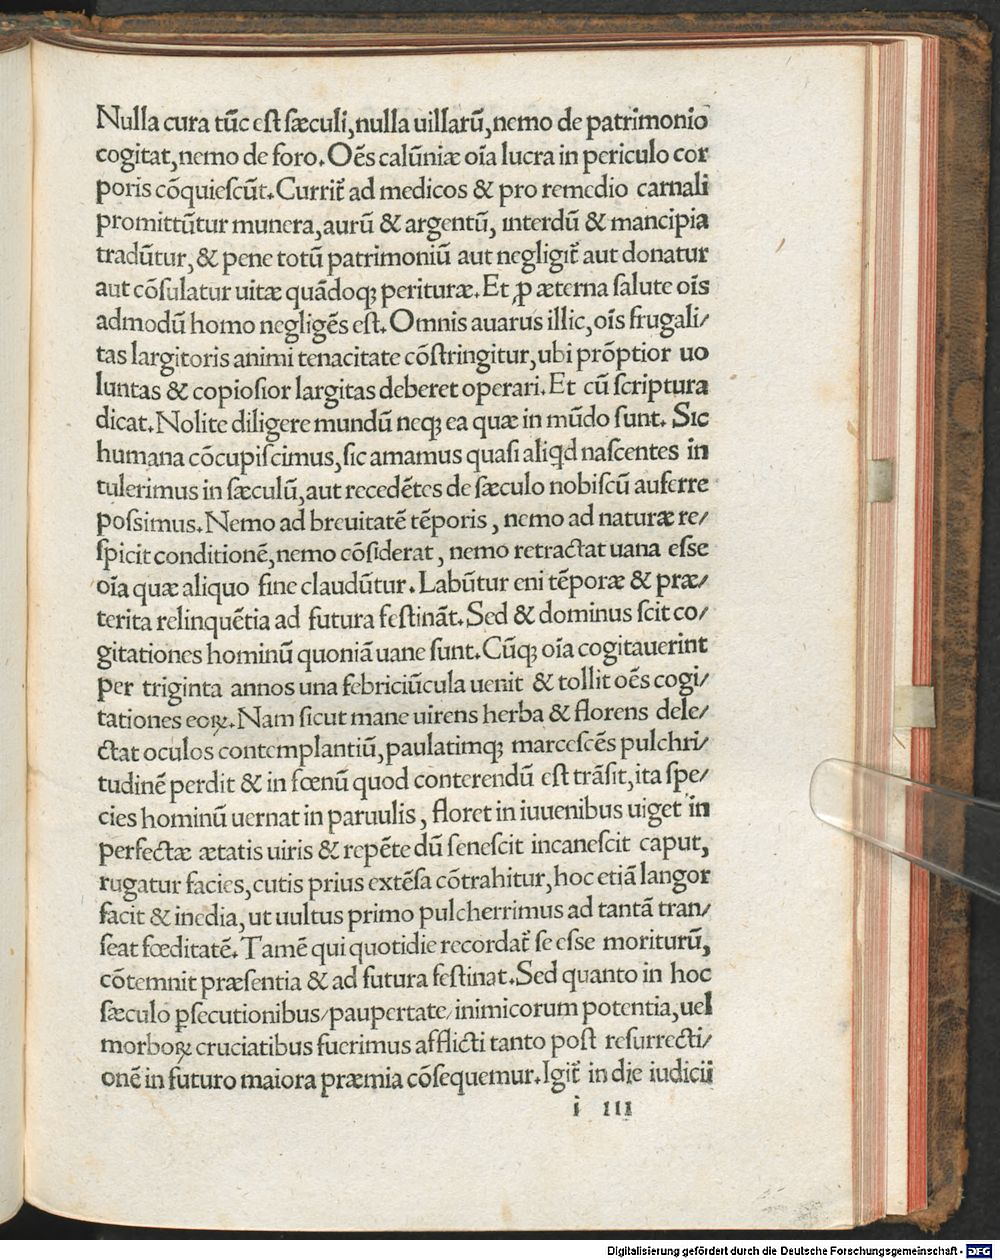 Nulla cura tūc est sæculi, nulla uillarū, nemo de patrimonio
cogitat, nemo de foro. Oēs calūniæ oīa lucra in periculo cor
poris cōquiescūt. Currit᷑ ad medicos & pro remedio carnali
promittūtur munera, aurū & argentū, interdū & mancipia
tradūtur, & pene totū patrimoniū aut negligit᷑ aut donatur
aut cōsulatur uitæ quādoqꝫ perituræ. Et ꝓ æterna salute oīs
admodū homo negligēs est. Omnis auarus illic, oīs frugali/
tas largitoris animi tenacitate cōstringitur, ubi prōptior uo
luntas & copiosior largitas deberet operari. Et cū scriptura
dicat. Nolite diligere mundū neqꝫ ea quæ in mūdo sunt. Sic
humana cōcupiscimus, sic amamus quasi aliꝗd nascentes in
tulerimus in sæculū, aut recedētes de sæculo nobiscū auferre
possimus. Nemo ad breuitatē tēporis, nemo ad naturæ re/
spicit conditionē, nemo cōsiderat, nemo retractat uana esse
oīa quæ aliquo fine claudūtur. Labūtur eni tēporæ & præ/
terita relinquētia ad futura festināt. Sed & dominus scit co/
gitationes hominū quoniā uane sunt. Cūqꝫ oīa cogitauerint
per triginta annos una febriciūcula uenit & tollit oēs cogi/
tationes eoꝝ. Nam sicut mane uirens herba & florens dele/
ctat oculos contemplantiū, paulatimqꝫ marcescēs pulchri/
tudinē perdit & in fœnū quod conterendū est trāsit, ita spe/
cies hominū uernat in paruulis, floret in iuuenibus uiget in
perfectæ ætatis uiris & repēte dū senescit incanescit caput,
rugatur facies, cutis prius extēsa cōtrahitur, hoc etiā langor
facit & inedia, ut uultus primo pulcherrimus ad tantā tran/
seat fœditatē. Tamē qui quotidie recordat᷑ se esse moriturū,
cōtemnit præsentia & ad futura festinat. Sed quanto in hoc
sæculo ꝑsecutionibus/paupertate/inimicorum potentia, uel
morboꝝ cruciatibus fuerimus afflicti tanto post resurrecti/
onē in futuro maiora præmia cōsequemur. Igit᷑ in die iudicii
i iii
Digitalisierung gefördert durch die Deutsche Forschungsgemeinschaft - DFG